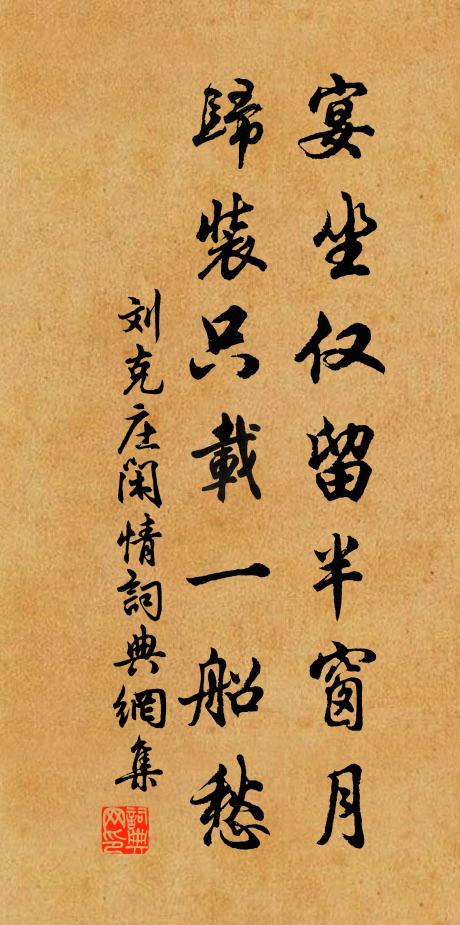 宴坐仅留半窗月
歸裝只載一船愁
刘克庄闲情詞典網集
詞典网印